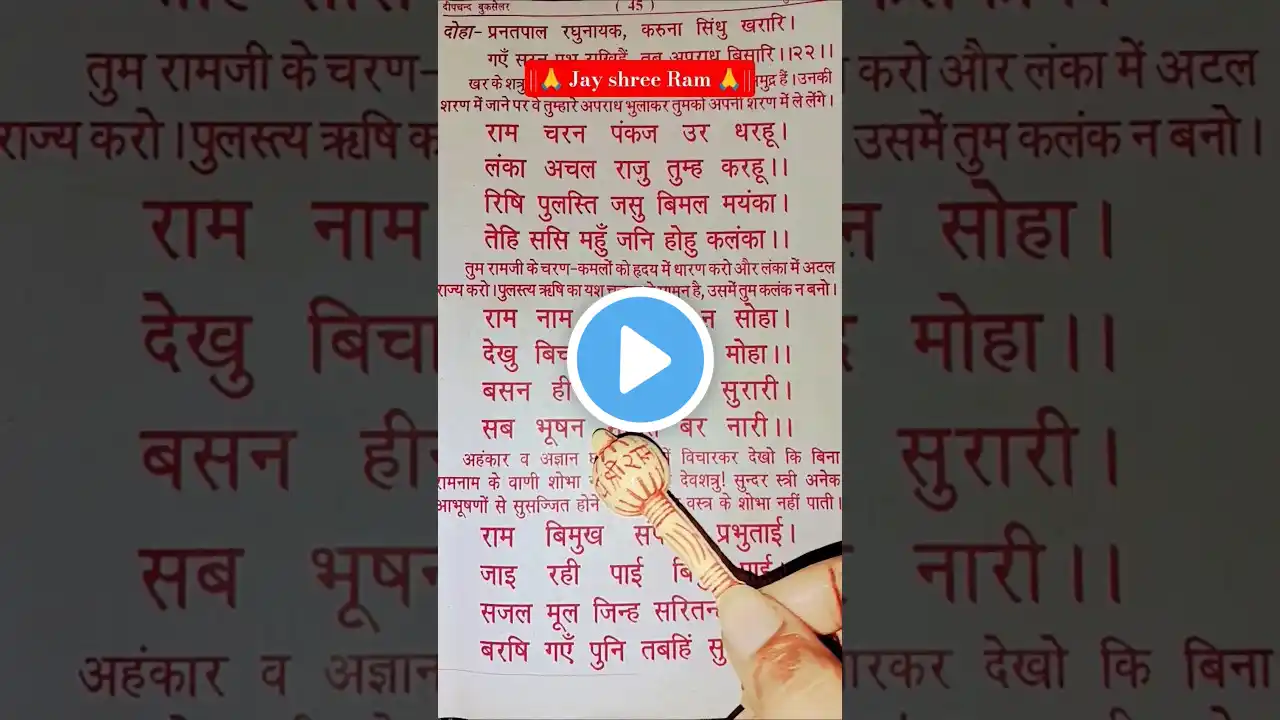 दीपचन्द बुकसेलर
( 45 )
दोहा- प्रनतपाल रघुनायक, करुना सिंधु खरारि।
गएँ सरन प्रभु राखिहैं, तव अपराध बिसारि।।२२।।
🙏 Jay shree Ram 🙏
खर के शत्रु समुद्र हैं। उनकी
शरण में जाने पर वे तुम्हारे अपराध भुलाकर तुमको अपनी शरण में ले लेंगे।
राम चरन पंकज उर धरहू।
लंका अचल राजु तुम्ह करहू।।
रिषि पुलस्ति जसु बिमल मयंका।
तेहि ससि महुँ जनि होहु कलंका।।
तुम रामजी के चरण-कमलों को हृदय में धारण करो और लंका में अटल
राज्य करो। पुलस्त्य ऋषि का यश है, उसमें तुम कलंक न बनो।
राम नाम सोहा।
देखु मोहा।।
बसन सुरारी।
सब भूषन बर नारी।।
अहंकार व अज्ञान विचारकर देखो कि बिना
रामनाम के वाणी शोभा देवशत्रु! सुन्दर स्त्री अनेक
आभूषणों से सुसज्जित होने वस्त्र के शोभा नहीं पाती।
राम बिमुख प्रभुताई।
जाइ रही पाई
सजल मूल जिन्ह
बरषि गएँ पुनि तबहिं